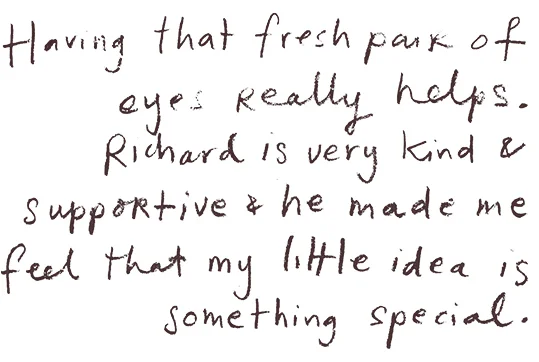 Having that fresh pair of
eyes really helps.
Richard is very kind &
supportive & he made me
feel that my little idea is
something special.